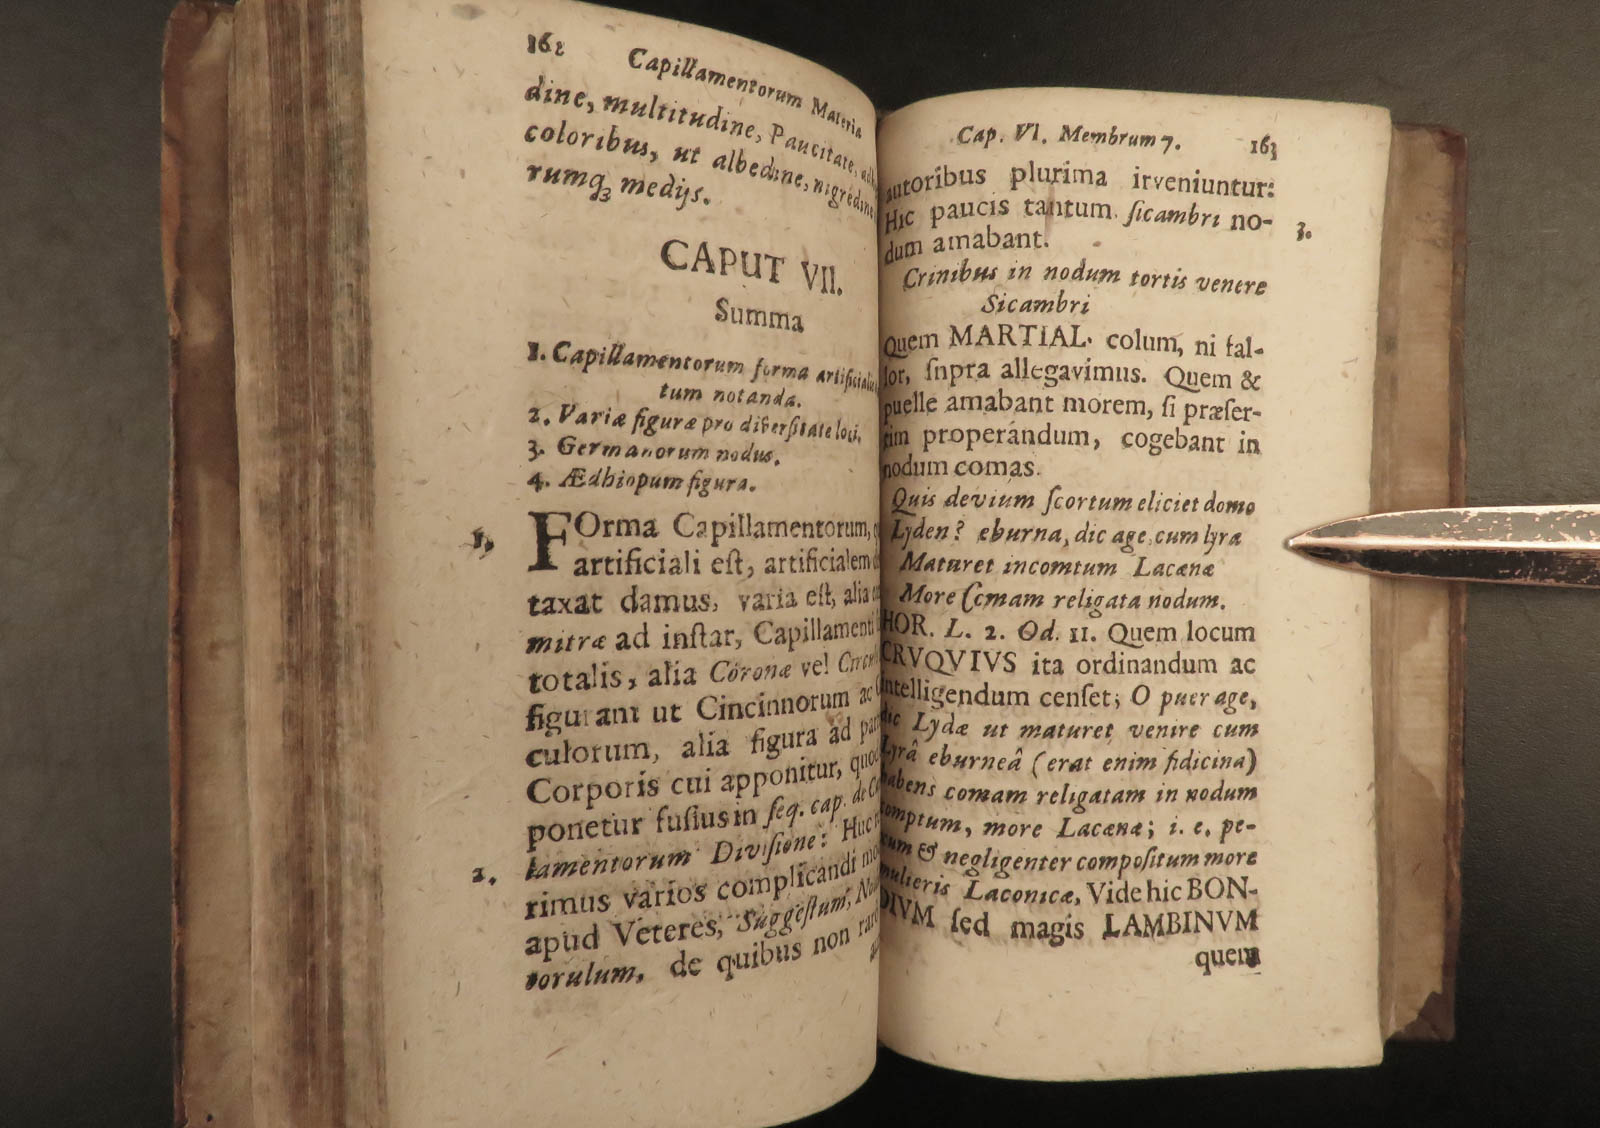 162 Capillamentorum Materia
dine, multitudine, Paucitate,
coloribus, ut albedine, nigredine
rumq; medijs.
CAPUT VII.
Summa
1. Capillamentorum forma artificialis
tum notanda.
2. Variæ figuræ pro diversitate loci.
3. Germanorum nodus.
4. Ædhiopum figura.
1. FOrma Capillamentorum,
artificiali eſt, artificialem
taxat damus, varia eſt, alia
mitræ ad inſtar, Capillamenti
totalis, alia Coronæ vel
figurant ut Cincinnorum ac
culorum, alia figura ad
Corporis cui apponitur,
ponetur fuſius in ſeq. cap. de
2. lamentorum Diviſione: Huc
rimus varios complicandi
apud Veteres, Suggeſtum,
torulum, de quibus non raro
Cap. VI. Membrum 7. 163
autoribus plurima irveniuntur:
Hic paucis tantum. ſicambri no-
3.
dum amabant.
Crinibus in nodum tortis venere
Sicambri
Quem MARTIAL. colum, ni fal-
lor, ſnpra allegavimus. Quem &
puelle amabant morem, ſi præſer-
tim properándum, cogebant in
nodum comas.
Quis devium ſcortum eliciet domo
Lyden? eburna, dic age, cum lyra
Maturet incomtum Lacænæ
More comam religata nodum.
HOR. L. 2. Od. 11. Quem locum
CRVQVIVS ita ordinandum ac
intelligendum cenſet; O puer age,
dic Lydæ ut maturet venire cum
Lyrâ eburneâ (erat enim fidicina)
habens comam religatam in nodum
comptum, more Lacænæ; i. e. pe-
xum & negligenter compoſitum more
mulieris Laconicæ, Vide hic BON-
DIVM ſed magis LAMBINVM
quem